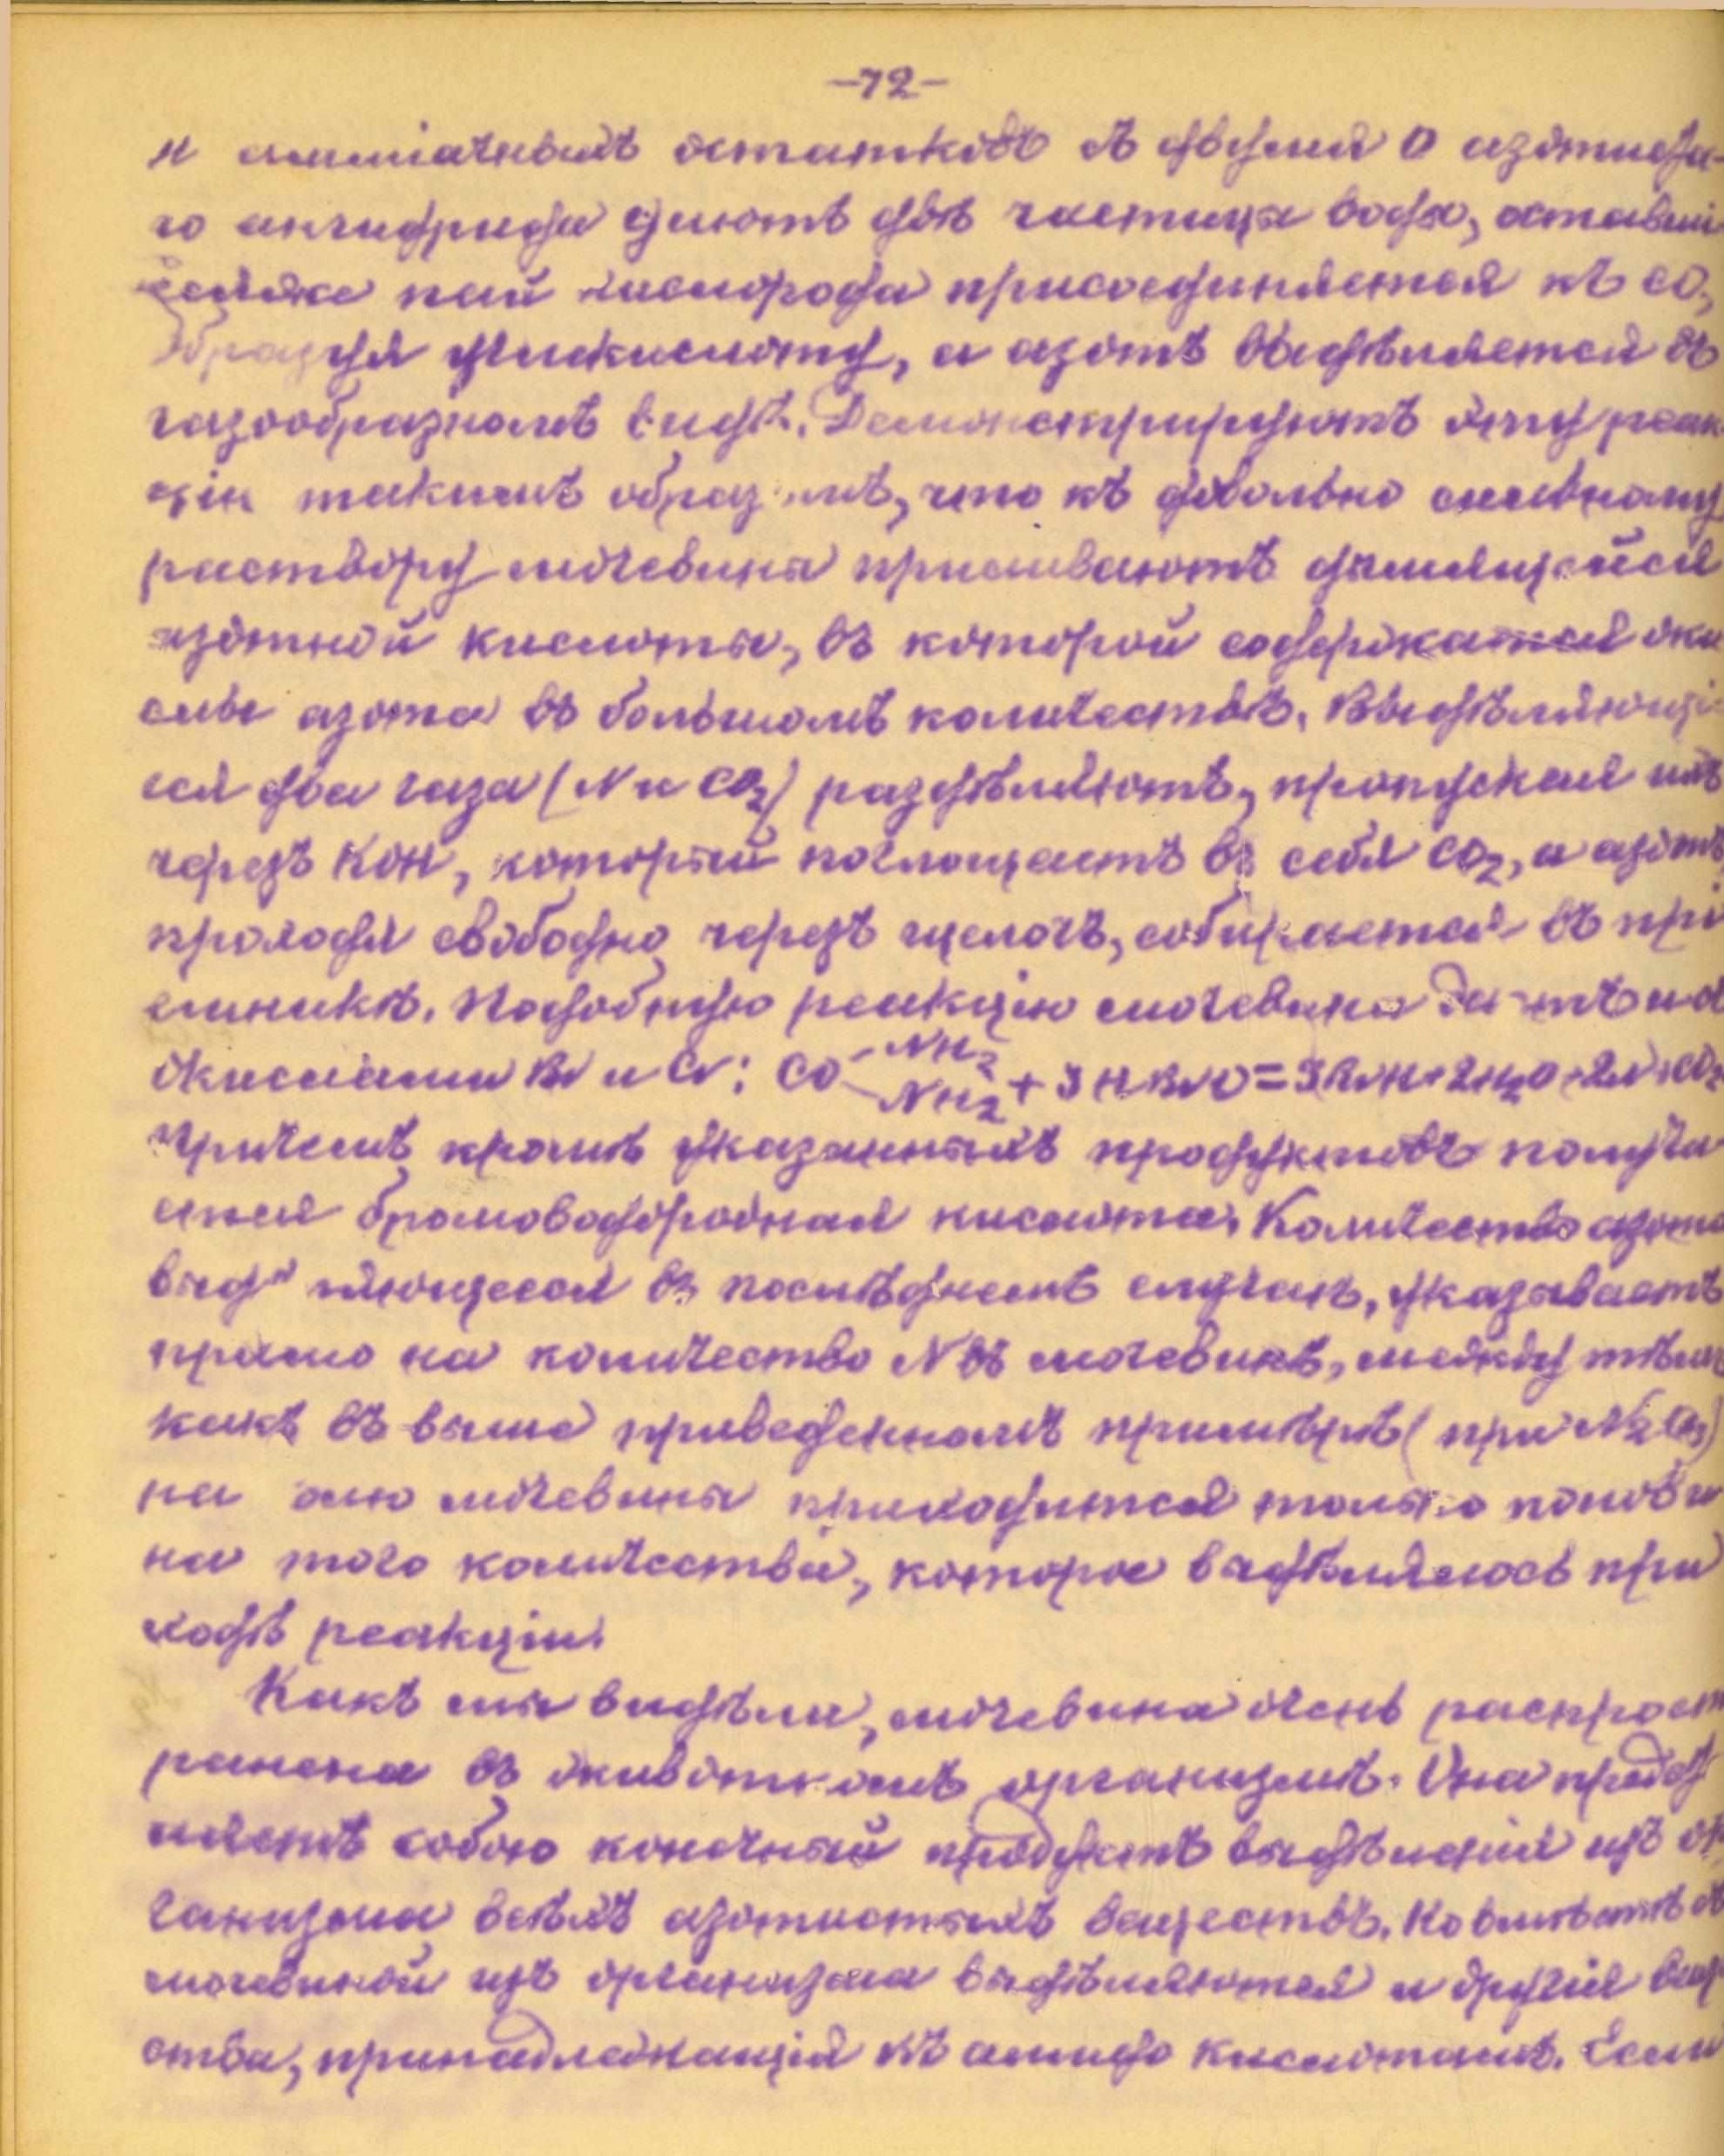 -72-
и амміачныхъ остатковъ съ двумя О азотиста-
го ангидрида даютъ двѣ частицы воды, оставші
сяже пай кислорода присоединяется къ CO,
образуя углекислоту, а азотъ выдѣляется въ
газообразномъ видѣ. Демонстрируютъ эту реак
цію такимъ образомъ, что къ довольно сильному
раствору мочевины приливаютъ дымящейся
азотной кислоты, въ которой содержатся оки
слы азота въ большомъ количествѣ. Выдѣляющіе
ся два газа (N и CO2) раздѣляютъ, пропуская ихъ
черезъ KOH, который поглощаетъ въ себя CO2, а азотъ
проходя свободно черезъ щелочь, собирается въ прі
емникѣ. Подобную реакцію мочевина даетъ и съ
окислами Br и Cr: CO NH2 NH2 + 3HBrO = 3BrH + 2H2O + 2N + CO2
Причемъ кромѣ указанныхъ продуктовъ получа
ется бромоводородная кислота. Количество азота
выдѣляющееся въ послѣднемъ случаѣ, указываетъ
прямо на количество N въ мочевинѣ, между тѣмъ
какъ въ выше приведенномъ примѣрѣ (при N2O3)
на долю мочевины приходится только полови
на того количества, которое выдѣлялось при
ходѣ реакціи.
Какъ мы видѣли, мочевина очень распрост
ранена въ животномъ организмѣ. Она предст
вляетъ собою конечный продуктъ выдѣленія изъ ор
ганизма всѣхъ азотистыхъ веществъ. Но вмѣстѣ съ
мочевиной изъ организма выдѣляются и другія вещ
ства, принадлежащія къ амидо кислотамъ. Если